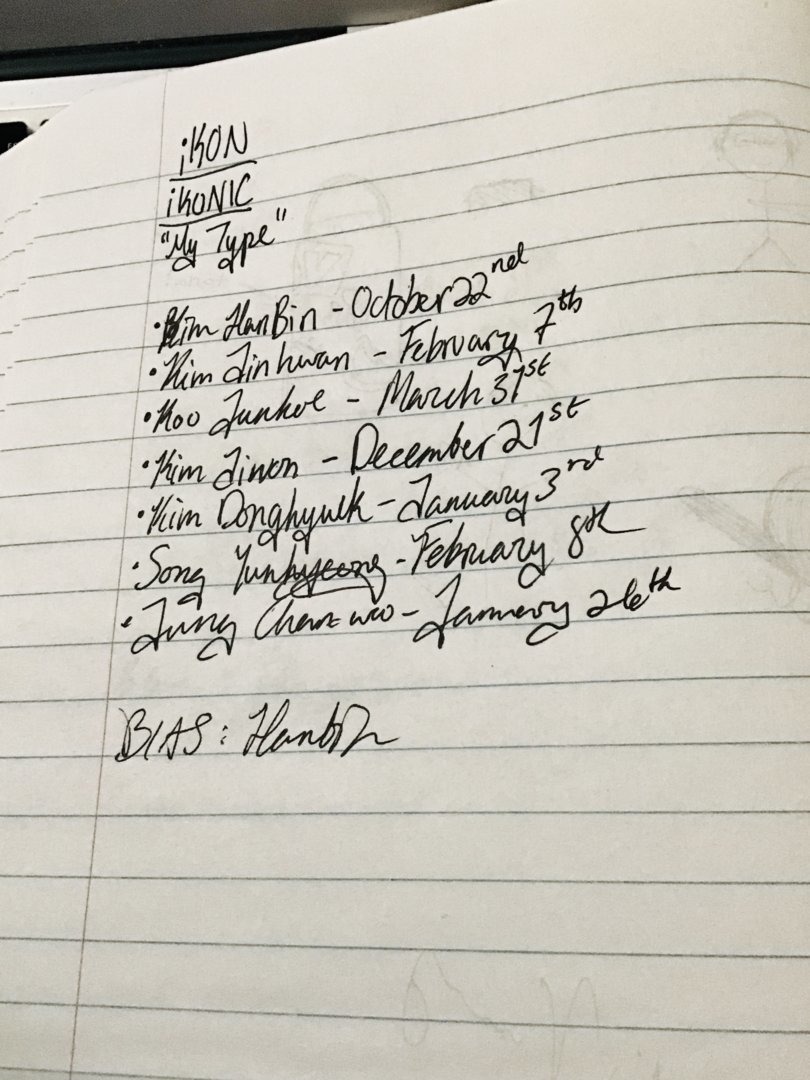 iKON
iKONIC
"My Type"
• Kim HanBin - October 22nd
• Kim Jinhwan - February 7th
• Koo Junhoe - March 31st
• Kim Jiwon - December 21st
• Kim Donghyuk - January 3rd
• Song Yunhyeong - February 8th
• Jung Chanwoo - January 26th
BIAS: Hanbin